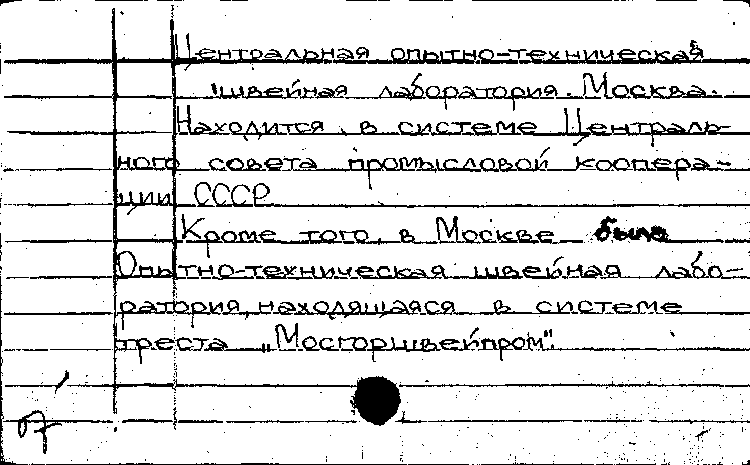 Центральная опытно-техническая
швейная лаборатория. Москва.
Находится в системе Централь-
ного совета промысловой коопера-
ции СССР
Кроме того, в Москве была
Опытно-техническая швейная лабо-
ратория, находящаяся в системе
треста „Мосгоршвейпром".